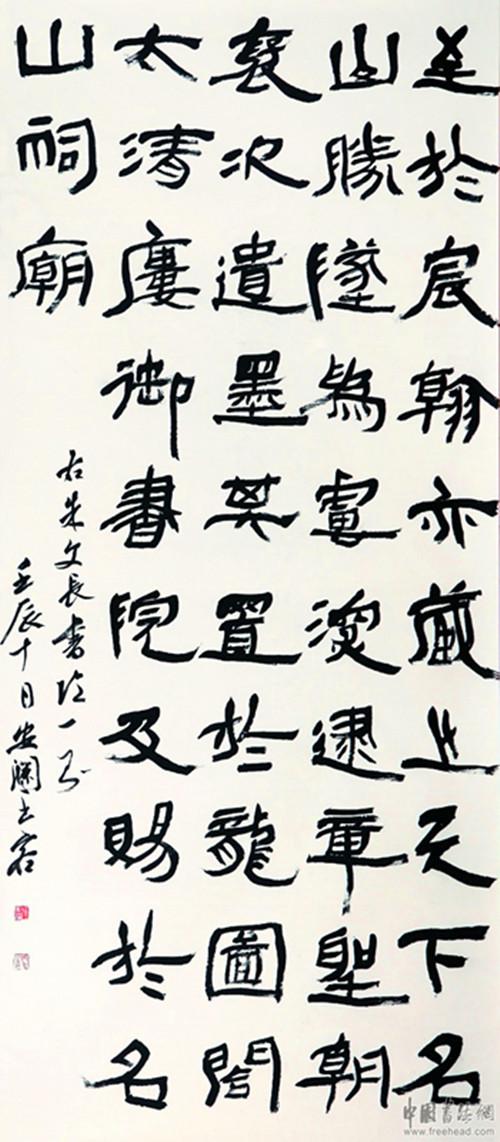 至於宸翰亦藏之天下名
山勝墬為慮深逮章聖朝
裒次遺墨其置於龍圖閣
太清廔御書院及賜於名
山祠廟
右朱文長書 一
壬辰十月安瀾
中国書法網
www.freehead.com